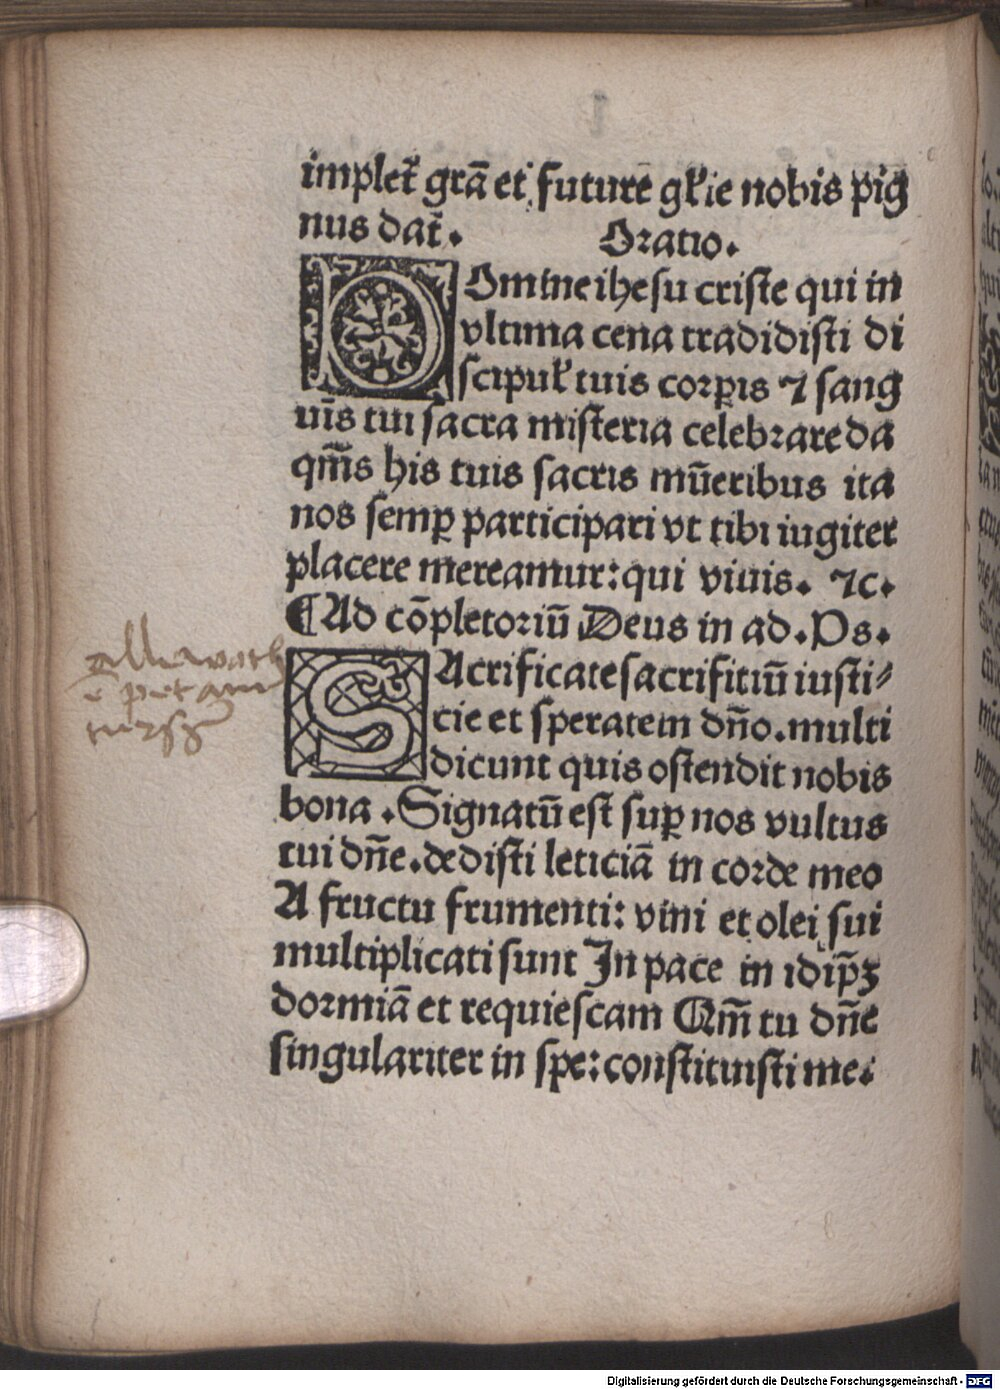 implet᷑ grā et future gl̄ie nobis pig
nus dat᷑. Oratio.
DOmine ihesu criste qui in
vltima cena tradidisti di
scipul̕ tuis corꝑis ⁊ sang
uīs tui sacra misteria celebrare da
qm̄s his tuis sacris mūeribus ita
nos semꝑ participari vt tibi iugiter
placere mereamur: qui viuis. ⁊c.
¶ Ad cōpletoriū Deus in ad. Ps.
SAcrificate sacrifitiū iusti⸗
cie et speratem dn̄o. multi
dicunt quis ostendit nobis
bona . Signatū est suꝑ nos vultus
tui dn̄e. dedisti leticiā in corde meo
A fructu frumenti: vini et olei sui
multiplicati sunt In pace in idip̄ꝫ
dormiā et requiescam Qm̄ tu dn̄e
singulariter in spe: constituisti me.
Digitalisierung gefördert durch die Deutsche Forschungsgemeinschaft - DFG